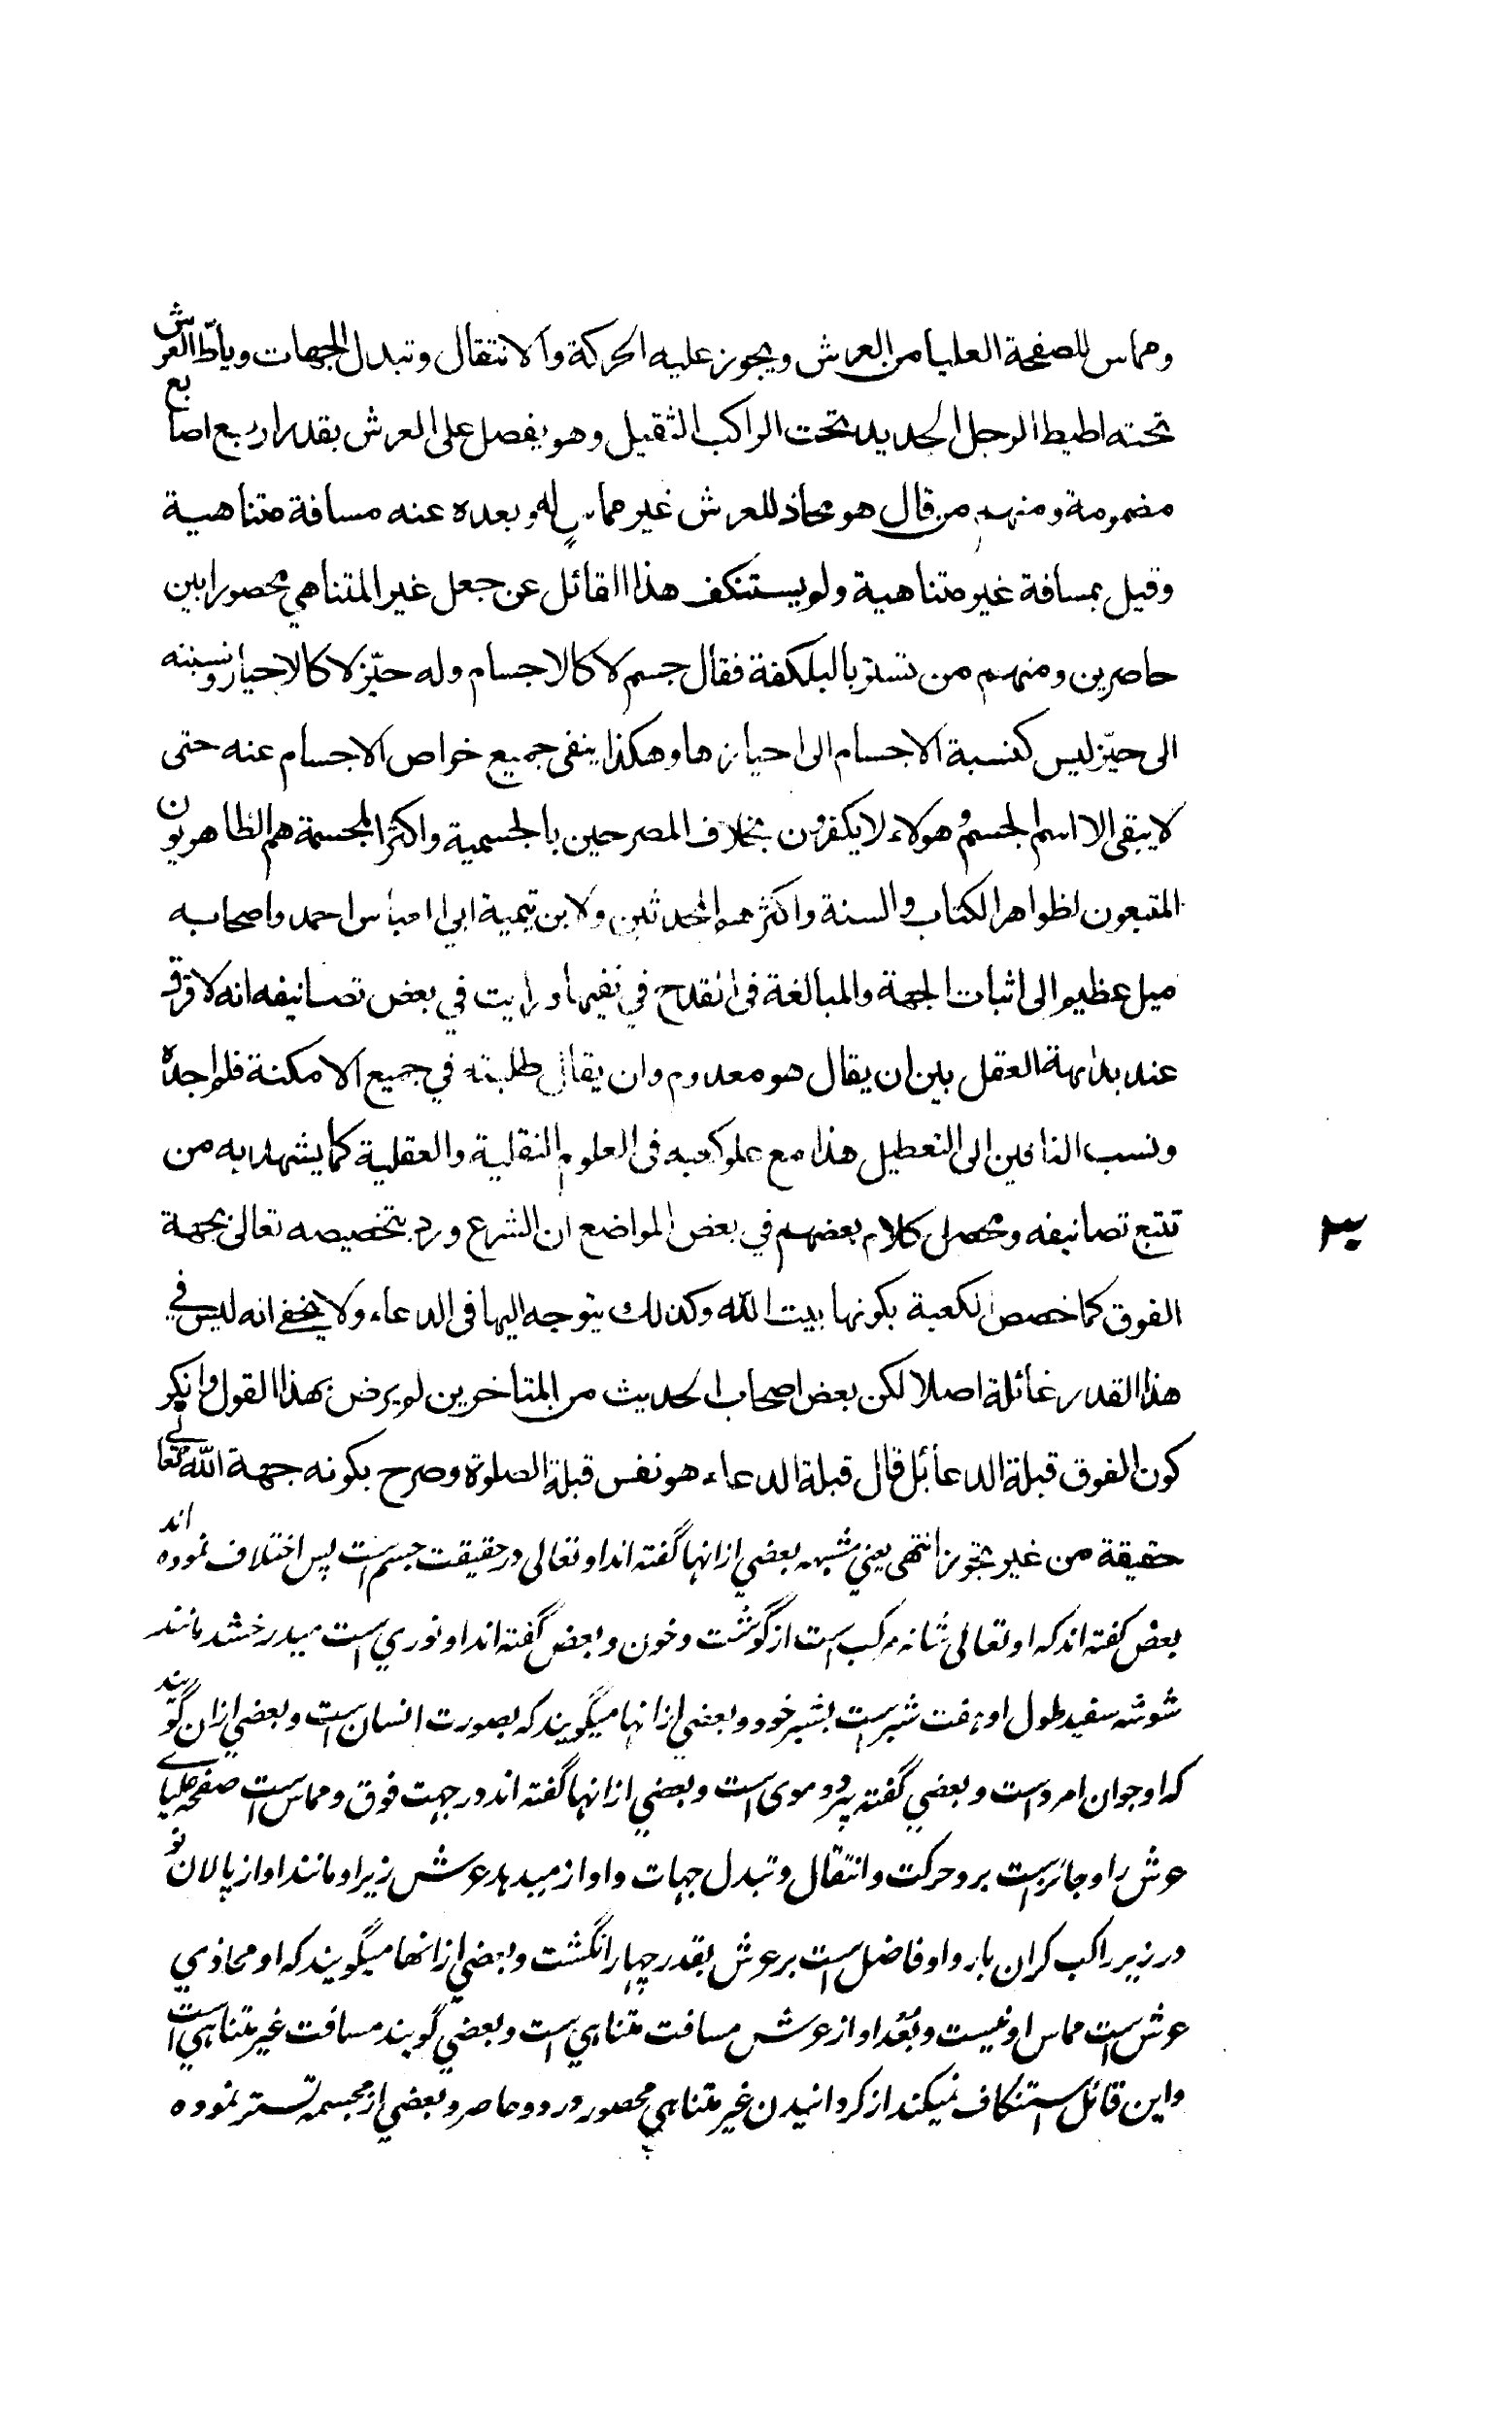 ومماس للصفحة العليا من العرش ويجوز عليه الحركة والانتقال وتبدل الجهات ويأطّ العرش
تحته اطيط الرحل الجديد تحت الراكب الثقيل وهو يفصل على العرش بقدر اربع اصابع
مضمومة ومنهم من قال هو محاذ للعرش غير مماس له وبعده عنه مسافة متناهية
وقيل بمسافة غير متناهية ولم يستنكف هذا القائل عن جعل غير المتناهي محصورا بين
حاصرين ومنهم من تستر بالبلكفة فقال جسم لا كالاجسام وله حيّز لا كالاحياز ونسبته
الى حيّز ليس كنسبة الاجسام الى احيازها وهكذا ينفى جميع خواص الاجسام عنه حتى
لا يبقى الا اسم الجسم وهولاء لا يكفرون بخلاف المصرحين بالجسمية واكثر المجسمة هم الظاهريون
المتبعون لظواهر الكتاب والسنة واكثرهم المحدثين ولابن تيمية ابي العباس احمد واصحابه
ميل عظيم الى اثبات الجهة والمبالغة فى القدح في نفيها ورايت في بعض تصانيفه انه لا فرق
عند بداهة العقل بين ان يقال هو معدوم وان يقال طلبته في جميع الامكنة فلم اجده
ونسب النافين الى التعطيل هذا مع علو كعبه فى العلوم النقلية والعقلية كما يشهد به من
تتبع تصانيفه ومحصل كلام بعضهم في بعض المواضع ان الشرع ورد بتخصيصه تعالى بجهة
الفوق كما خصص الكعبة بكونها بيت الله وكذلك يتوجه اليها فى الدعاء ولا يخفى انه ليس في
هذا القدر غائلة اصلا لكن بعض اصحاب الحديث من المتأخرين لم يرض بهذا القول وانكر
كون الفوق قبلة الدعا بل قال قبلة الدعاء هو نفس قبلة الصلوة وصرح بكونه جهة الله تعالى
حقيقة من غير تجوز انتهى يعني مشبهه بعضي ازانها گفته اند او تعالى درحقيقت جسم است پس اختلاف نموده اند
بعض گفته اند كه او تعالى شانه مركب است از گوشت وخون وبعض گفته اند او نوري است ميدرخشد مانند
شوشه سفيد طول او هفت شبر است بشبر خود وبعضي ازانها ميگويند كه بصورت انسان است وبعضي ازان گويند
كه او جوان امرد است وبعضي گفته پير دو موى است وبعضي ازانها گفته اند در جهت فوق ومماس است صفحه علياى
عرش را وجائز است برو حركت وانتقال وتبدل جهات واواز ميدهد عرش زير او مانند اواز پالان نو
در زير راكب گران بار واو فاضل است بر عرش بقدر چهار انگشت وبعضي ازانها ميگويند كه او محاذي
عرش است مماس او نيست وبُعد او از عرش مسافت متناهي است وبعضي گويند مسافت غير متناهي است
واين قائل استنكاف نميكند از گردانيدن غير متناهي محصور در دو حاصر وبعضي از مجسمه تستر نموده